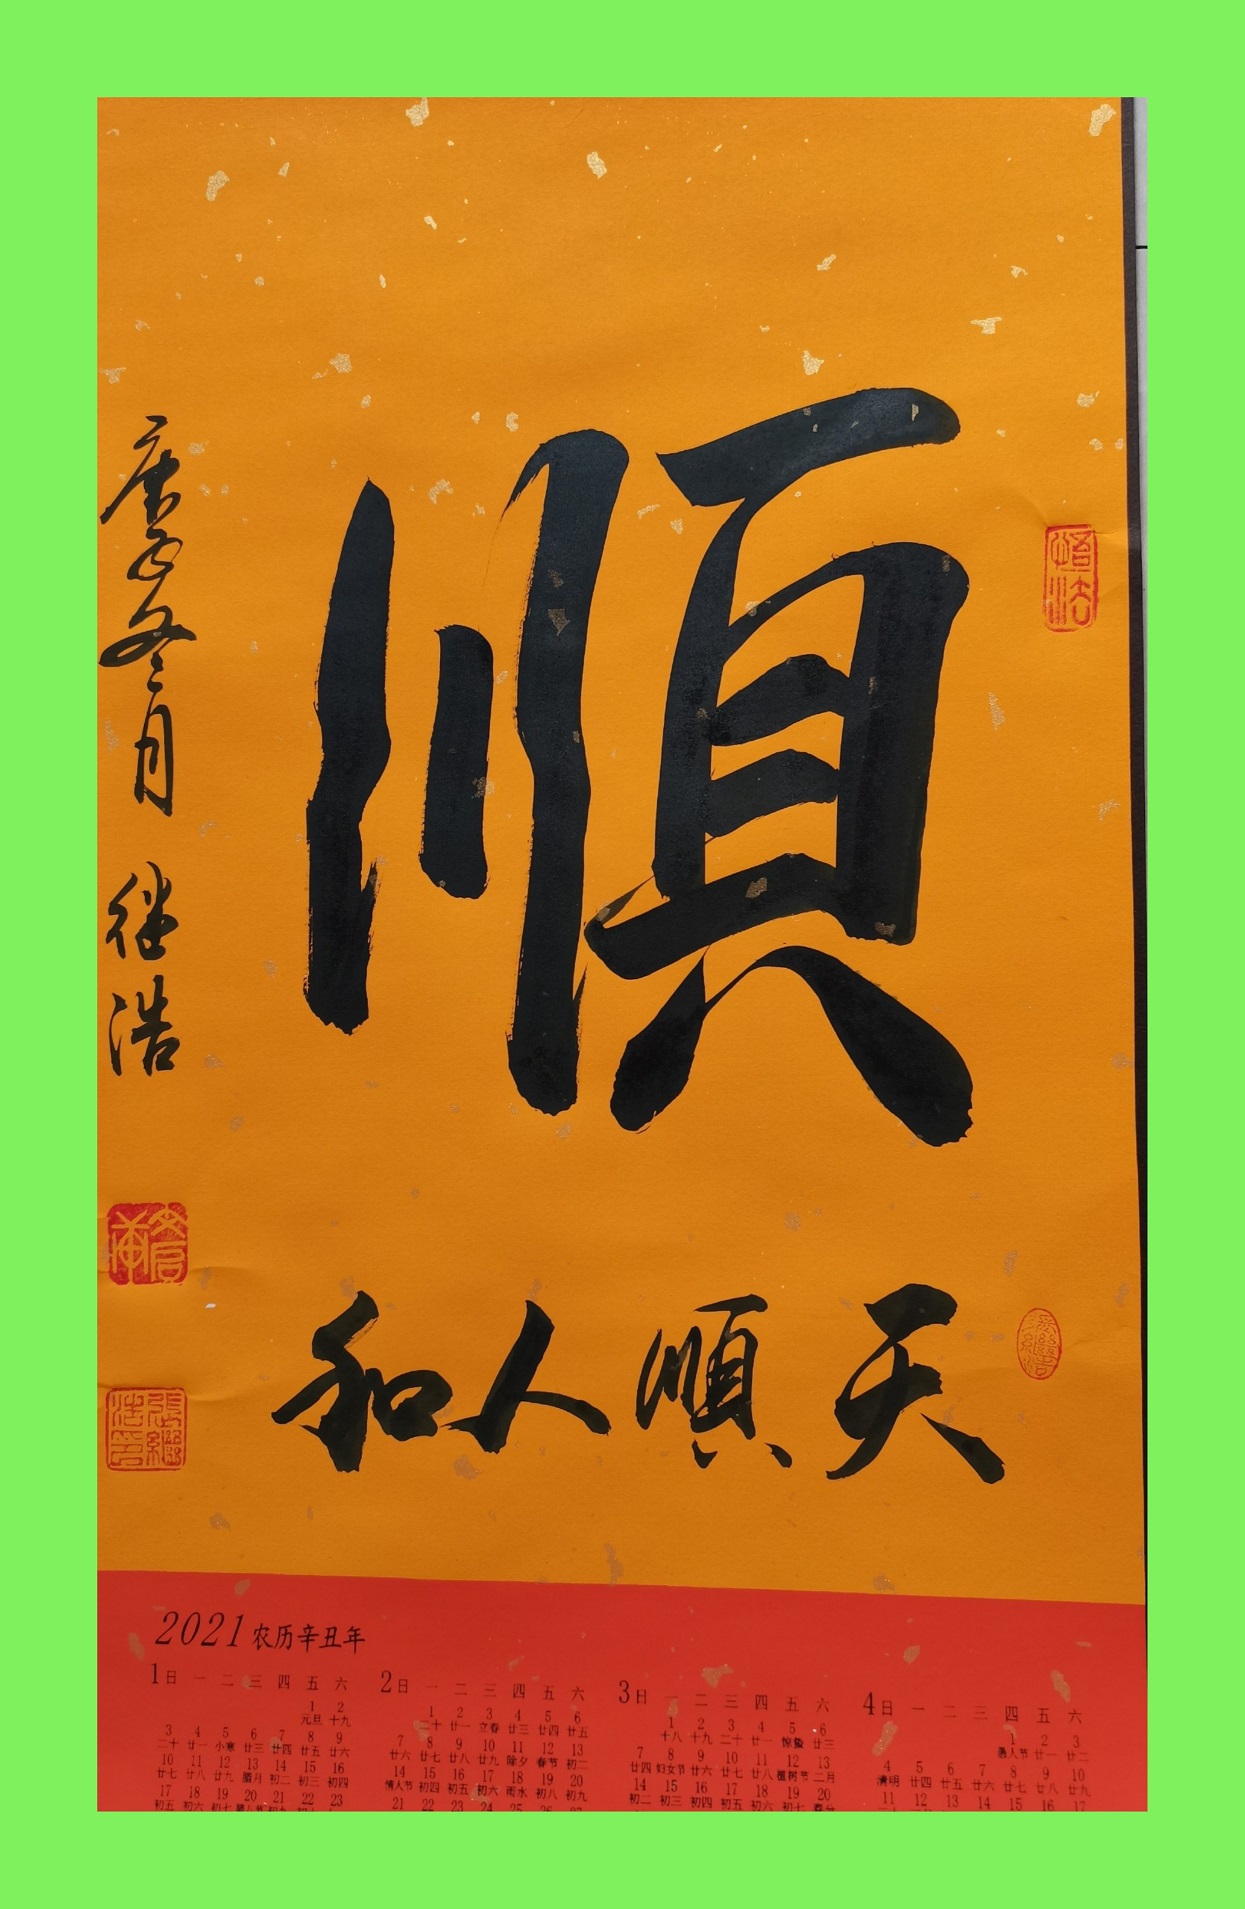 順
天順人和
庚子冬月 继浩
悟法
張繼浩
2021 农历辛丑年
1 日 一 二 三 四 五 六
1 2
元旦 十九
3 4 5 6 7 8 9
二十 廿一 小寒 廿三 廿四 廿五 廿六
10 11 12 13 14 15 16
廿七 廿八 廿九 腊月 初二 初三 初四
17 18 19 20 21 22 23
初五 初六 初七
2 日 一 二 三 四 五 六
1 2 3 4 5 6
二十 廿一 立春 廿三 廿四 廿五
7 8 9 10 11 12 13
廿六 廿七 廿八 廿九 除夕 春节 初二
14 15 16 17 18 19 20
情人节 初四 初五 初六 雨水 初八 初九
21 22 23 24 25 26 27
3 日 一 二 三 四 五 六
1 2 3 4 5 6
十八 十九 二十 廿一 惊蛰 廿三
7 8 9 10 11 12 13
廿四 妇女节 廿六 廿七 廿八 植树节 二月
14 15 16 17 18 19 20
初二 初三 初四 初五 初六 初七 春分
4 日 一 二 三 四 五 六
1 2 3
愚人节 廿一 廿二
4 5 6 7 8 9 10
清明 廿四 廿五 廿六 廿七 廿八 廿九
11 12 13 14 15 16 17